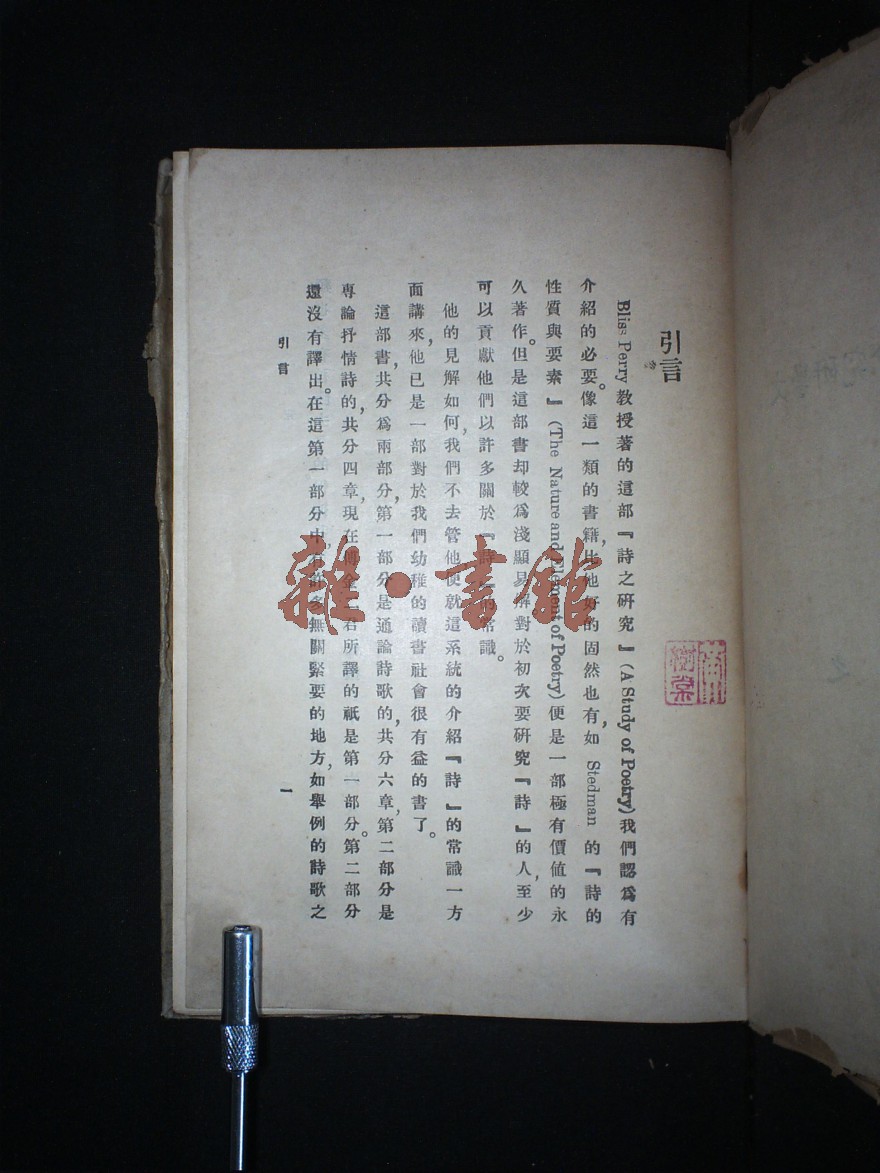 引言
Bliss Perry教授著的這部『詩之研究』(A Study of Poetry)我們認爲有
介紹的必要。像這一類的書籍,比他好的固然也有,如 Stedman 的『詩的
性質與要素』(The Nature and Element of Poetry)便是一部極有價值的永
久著作。但是這部書却較爲淺顯易解對於初次要研究『詩』的人,至少
可以貢獻他們以許多關於『詩』的常識。
他的見解如何,我們不去管他便就這系統的介紹『詩』的常識一方
面講來,他已是一部對於我們幼稚的讀書社會很有益的書了。
這部書,共分爲兩部分,第一部分是通論詩歌的,共分六章,第二部分是
專論抒情詩的,共分四章,現在傅金二君所譯的祇是第一部分。第二部分
還沒有譯出。在這第一部分中,有許多無關緊要的地方,如舉例的詩歌之
引言
一
雜·書館